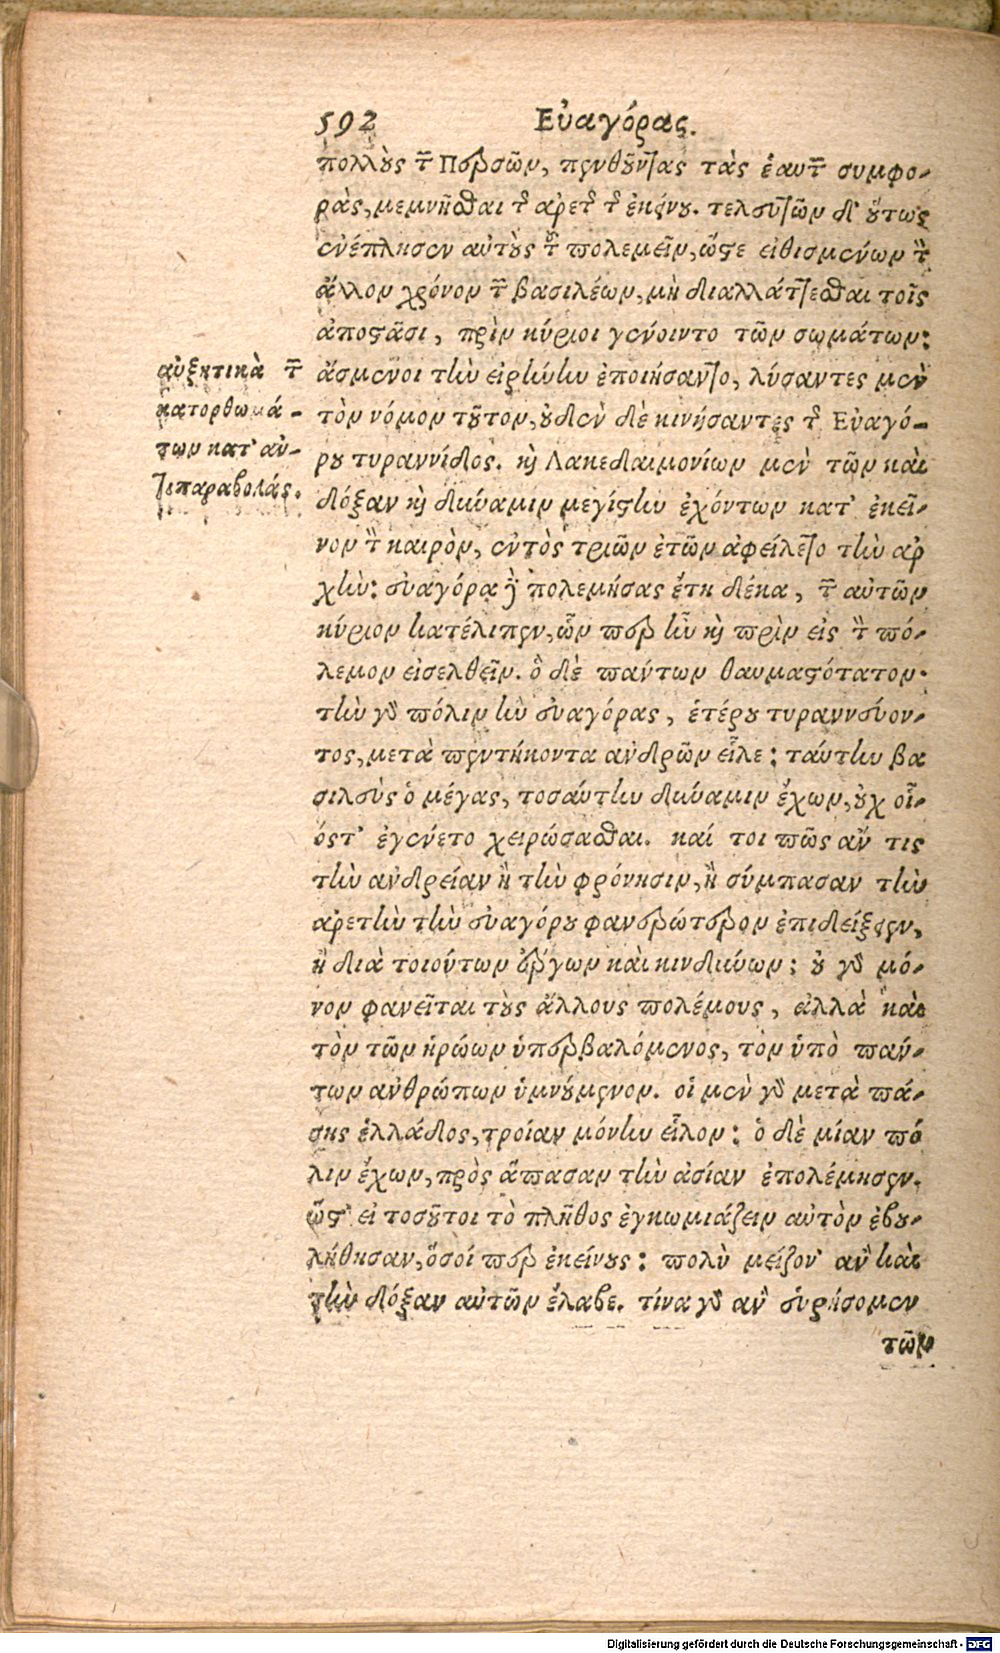 592 Εὐαγόρας.
πολλοὺς τῶν Περσῶν, πενθοῦντας τὰς ἑαυτῶν συμφο-
ρὰς, μεμνῆσθαι τῆς ἀρετῆς τῆς ἐκείνου. τελευτῶν δ' οὕτως
ἐνέπλησεν αὐτοὺς τοῦ πολεμεῖν, ὥστε εἰθισμένων τὸν
ἄλλον χρόνον τῶν βασιλέων, μὴ διαλλάττεσθαι τοῖς
ἀποστᾶσι, πρὶν κύριοι γένοιντο τῶν σωμάτων:
ἄσμενοι τὴν εἰρήνην ἐποιήσαντο, λύσαντες μὲν
τὸν νόμον τοῦτον, οὐδὲν δὲ κινήσαντες τῆς Εὐαγό-
ρου τυραννίδος. καὶ Λακεδαιμονίων μὲν τῶν καὶ
δόξαν καὶ δύναμιν μεγίστην ἐχόντων κατ' ἐκεῖ-
νον τὸν καιρὸν, ἐντὸς τριῶν ἐτῶν ἀφείλετο τὴν ἀρ
χήν: εὐαγόρα δὲ πολεμήσας ἔτη δέκα, τῶν αὐτῶν
κύριον κατέλιπεν, ὧν περ ἦν καὶ πρὶν εἰς τὸν πό-
λεμον εἰσελθεῖν. ὃ δὲ πάντων θαυμαστότατον.
τὴν γὰρ πόλιν ἣν εὐαγόρας, ἑτέρου τυραννεύον-
τος, μετὰ πεντήκοντα ἀνδρῶν εἷλε: ταύτην βα
σιλεὺς ὁ μέγας, τοσαύτην δύναμιν ἔχων, οὐχ οἷ-
ός τ' ἐγένετο χειρώσασθαι. καί τοι πῶς ἄν τις
τὴν ἀνδρείαν ἢ τὴν φρόνησιν, ἢ σύμπασαν τὴν
ἀρετὴν τὴν εὐαγόρου φανερώτερον ἐπιδείξεεν,
ἢ διὰ τοιούτων ἔργων καὶ κινδύνων; οὐ γὰρ μό-
νον φανεῖται τοὺς ἄλλους πολέμους, ἀλλὰ καὶ
τὸν τῶν ἡρώων ὑπερβαλόμενος, τὸν ὑπὸ πάν-
των ἀνθρώπων ὑμνούμενον. οἱ μὲν γὰρ μετὰ πά-
σης ἑλλάδος, τροίαν μόνην εἷλον: ὁ δὲ μίαν πό
λιν ἔχων, πρὸς ἅπασαν τὴν ἀσίαν ἐπολέμησεν.
ὥστ' εἰ τοσοῦτοι τὸ πλῆθος ἐγκωμιάζειν αὐτὸν ἐβου-
λήθησαν, ὅσοί περ ἐκείνους: πολὺ μείζον' ἂν καὶ
τὴν δόξαν αὐτῶν ἔλαβε. τίνα γὰρ ἂν εὑρήσομεν
τῶν
αὐξητικὰ τῶν
κατορθωμά-
των κατ' ἀν-
τιπαραβολάς.
Digitalisierung gefördert durch die Deutsche Forschungsgemeinschaft - DFG